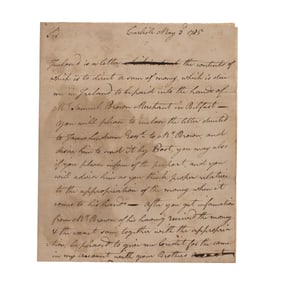 Sir Carlisle May 3d 1785
Inclosed is a letter the contents of
which is to direct a sum of money which is due
me in Ireland to be paid into the hands of
Mr. Samuel Brown Merchant in Bilfast —
you will please to inclose the letter directed
to James Lindsau Esqr. to Mr. Brown, and
desire him to send it by Post, you may also
if you please inform of the purport, and you
will advise him as you think proper relative
to the appropriation of the money when it
comes to his hands — After you get information
from Mr. Brown of his having received the money
& the exact sum together with the appropria-
tion, be pleased to give me Credit for the same
in my account with your Brothers